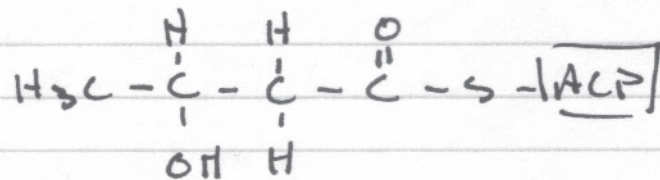 H H O
H₃C - C - C - C - S - ACP
OH H